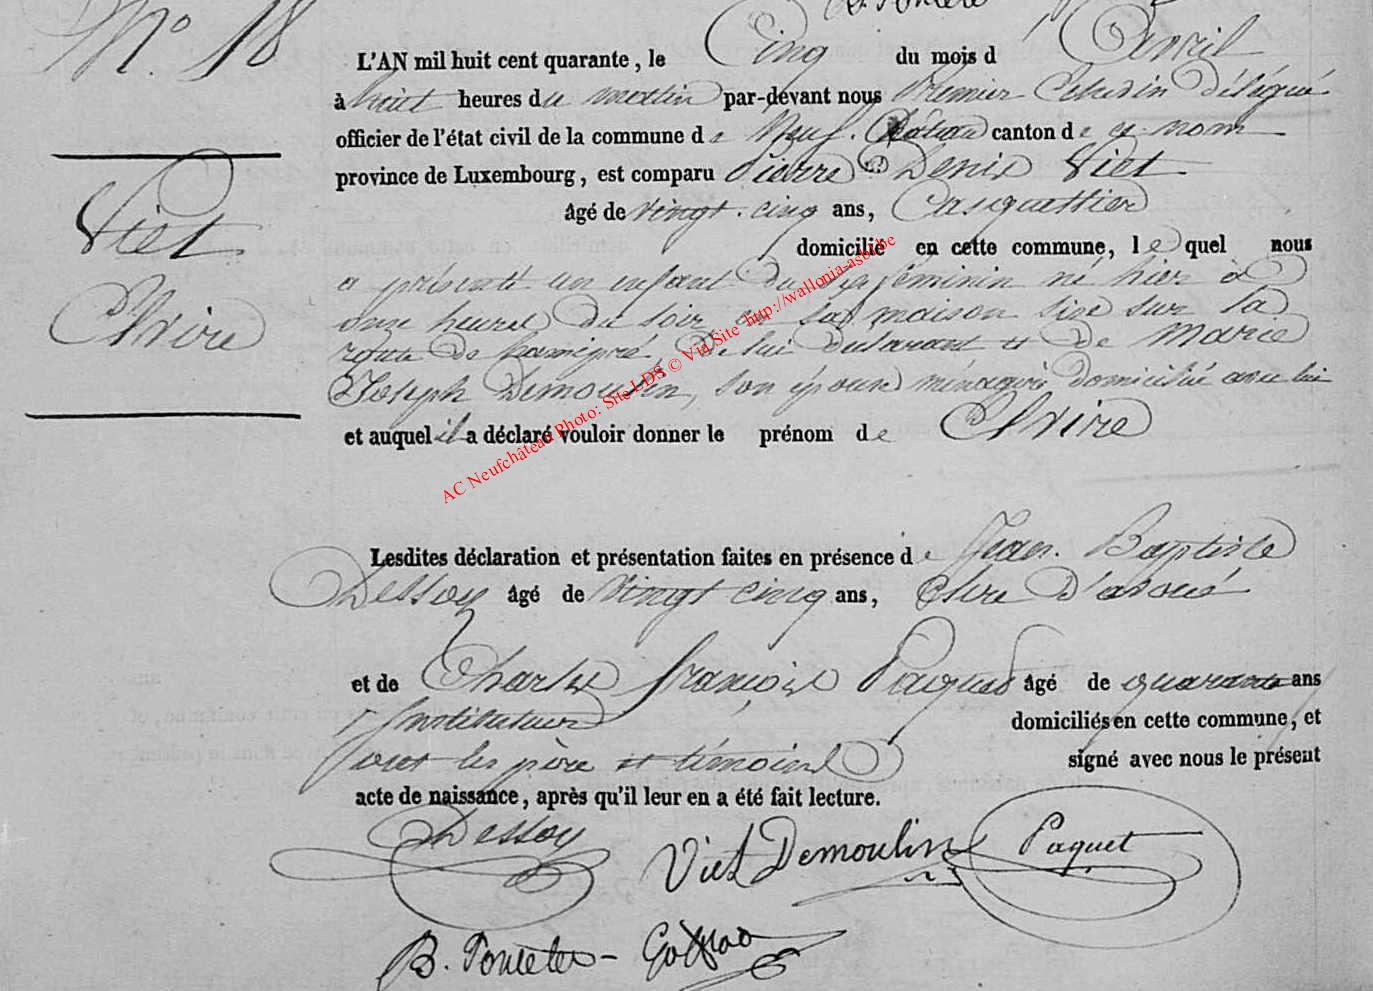 N.º 18
L'AN mil huit cent quarante, le Cinq du mois d'Avril
à huit heures du matin par-devant nous Premier Echevin délégué
officier de l'état civil de la commune de Neuf-Château canton de ce nom
province de Luxembourg, est comparu Pierre Denis Viet
âgé de vingt-cinq ans, Casquettier
domicilié en cette commune, lequel nous
a présenté un enfant du sexe féminin né hier à
onze heures du soir en sa maison sise sur la
route de Lamigré, de lui déclarant et de Marie
Joseph Demoulin, son épouse ménagère domiciliée avec lui
et auquel il a déclaré vouloir donner le prénom de Elvire
Viet
Elvire
Lesdites déclaration et présentation faites en présence de Jean-Baptiste
Dessoy âgé de vingt cinq ans, Clerc d'avoué
et de Charles François Paquet âgé de quarante ans
Instituteur domiciliés en cette commune, et
ont les père et témoins signé avec nous le présent
acte de naissance, après qu'il leur en a été fait lecture.
Dessoy
Viet Demoulin Paquet
B. Poncelet-
AC Neufchâteau Photo: Site LDS © Via Site http://wallonia-asbl.be